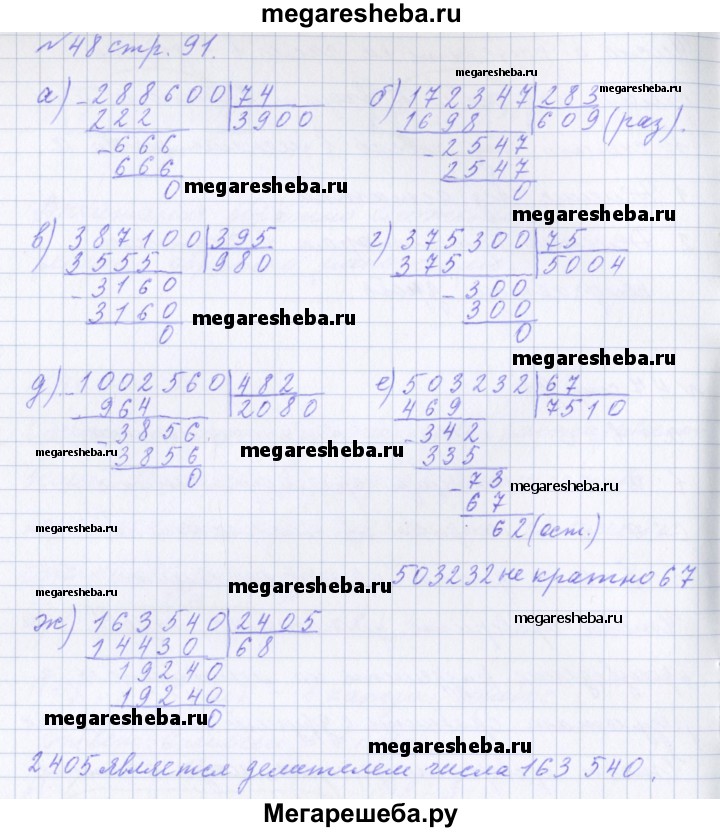 megaresheba.ru
№48 стр. 91.
megaresheba.ru
а) -288600|74 б) 172347|283
222 3900 1698 609 (раз).
-666 -2547
666 2547
0 megaresheba.ru 0
megaresheba.ru
в) 387100|395 г) 375300|75
3555 980 375 5004
-3160 -300
3160 300
0 megaresheba.ru 0
megaresheba.ru
д) -1002560|482 е) 503232|67
964 2080 469 7510
-3856. -342
megaresheba.ru 3856 megaresheba.ru 335
0 -73 megaresheba.ru
67
megaresheba.ru 62 (ост.)
megaresheba.ru megaresheba.ru 503232 не кратно 67
ж) 163540|2405 megaresheba.ru
14430 68
19240
19240
megaresheba.ru 0
megaresheba.ru
2405 является делителем числа 163 540.
Мегарешеба.ру